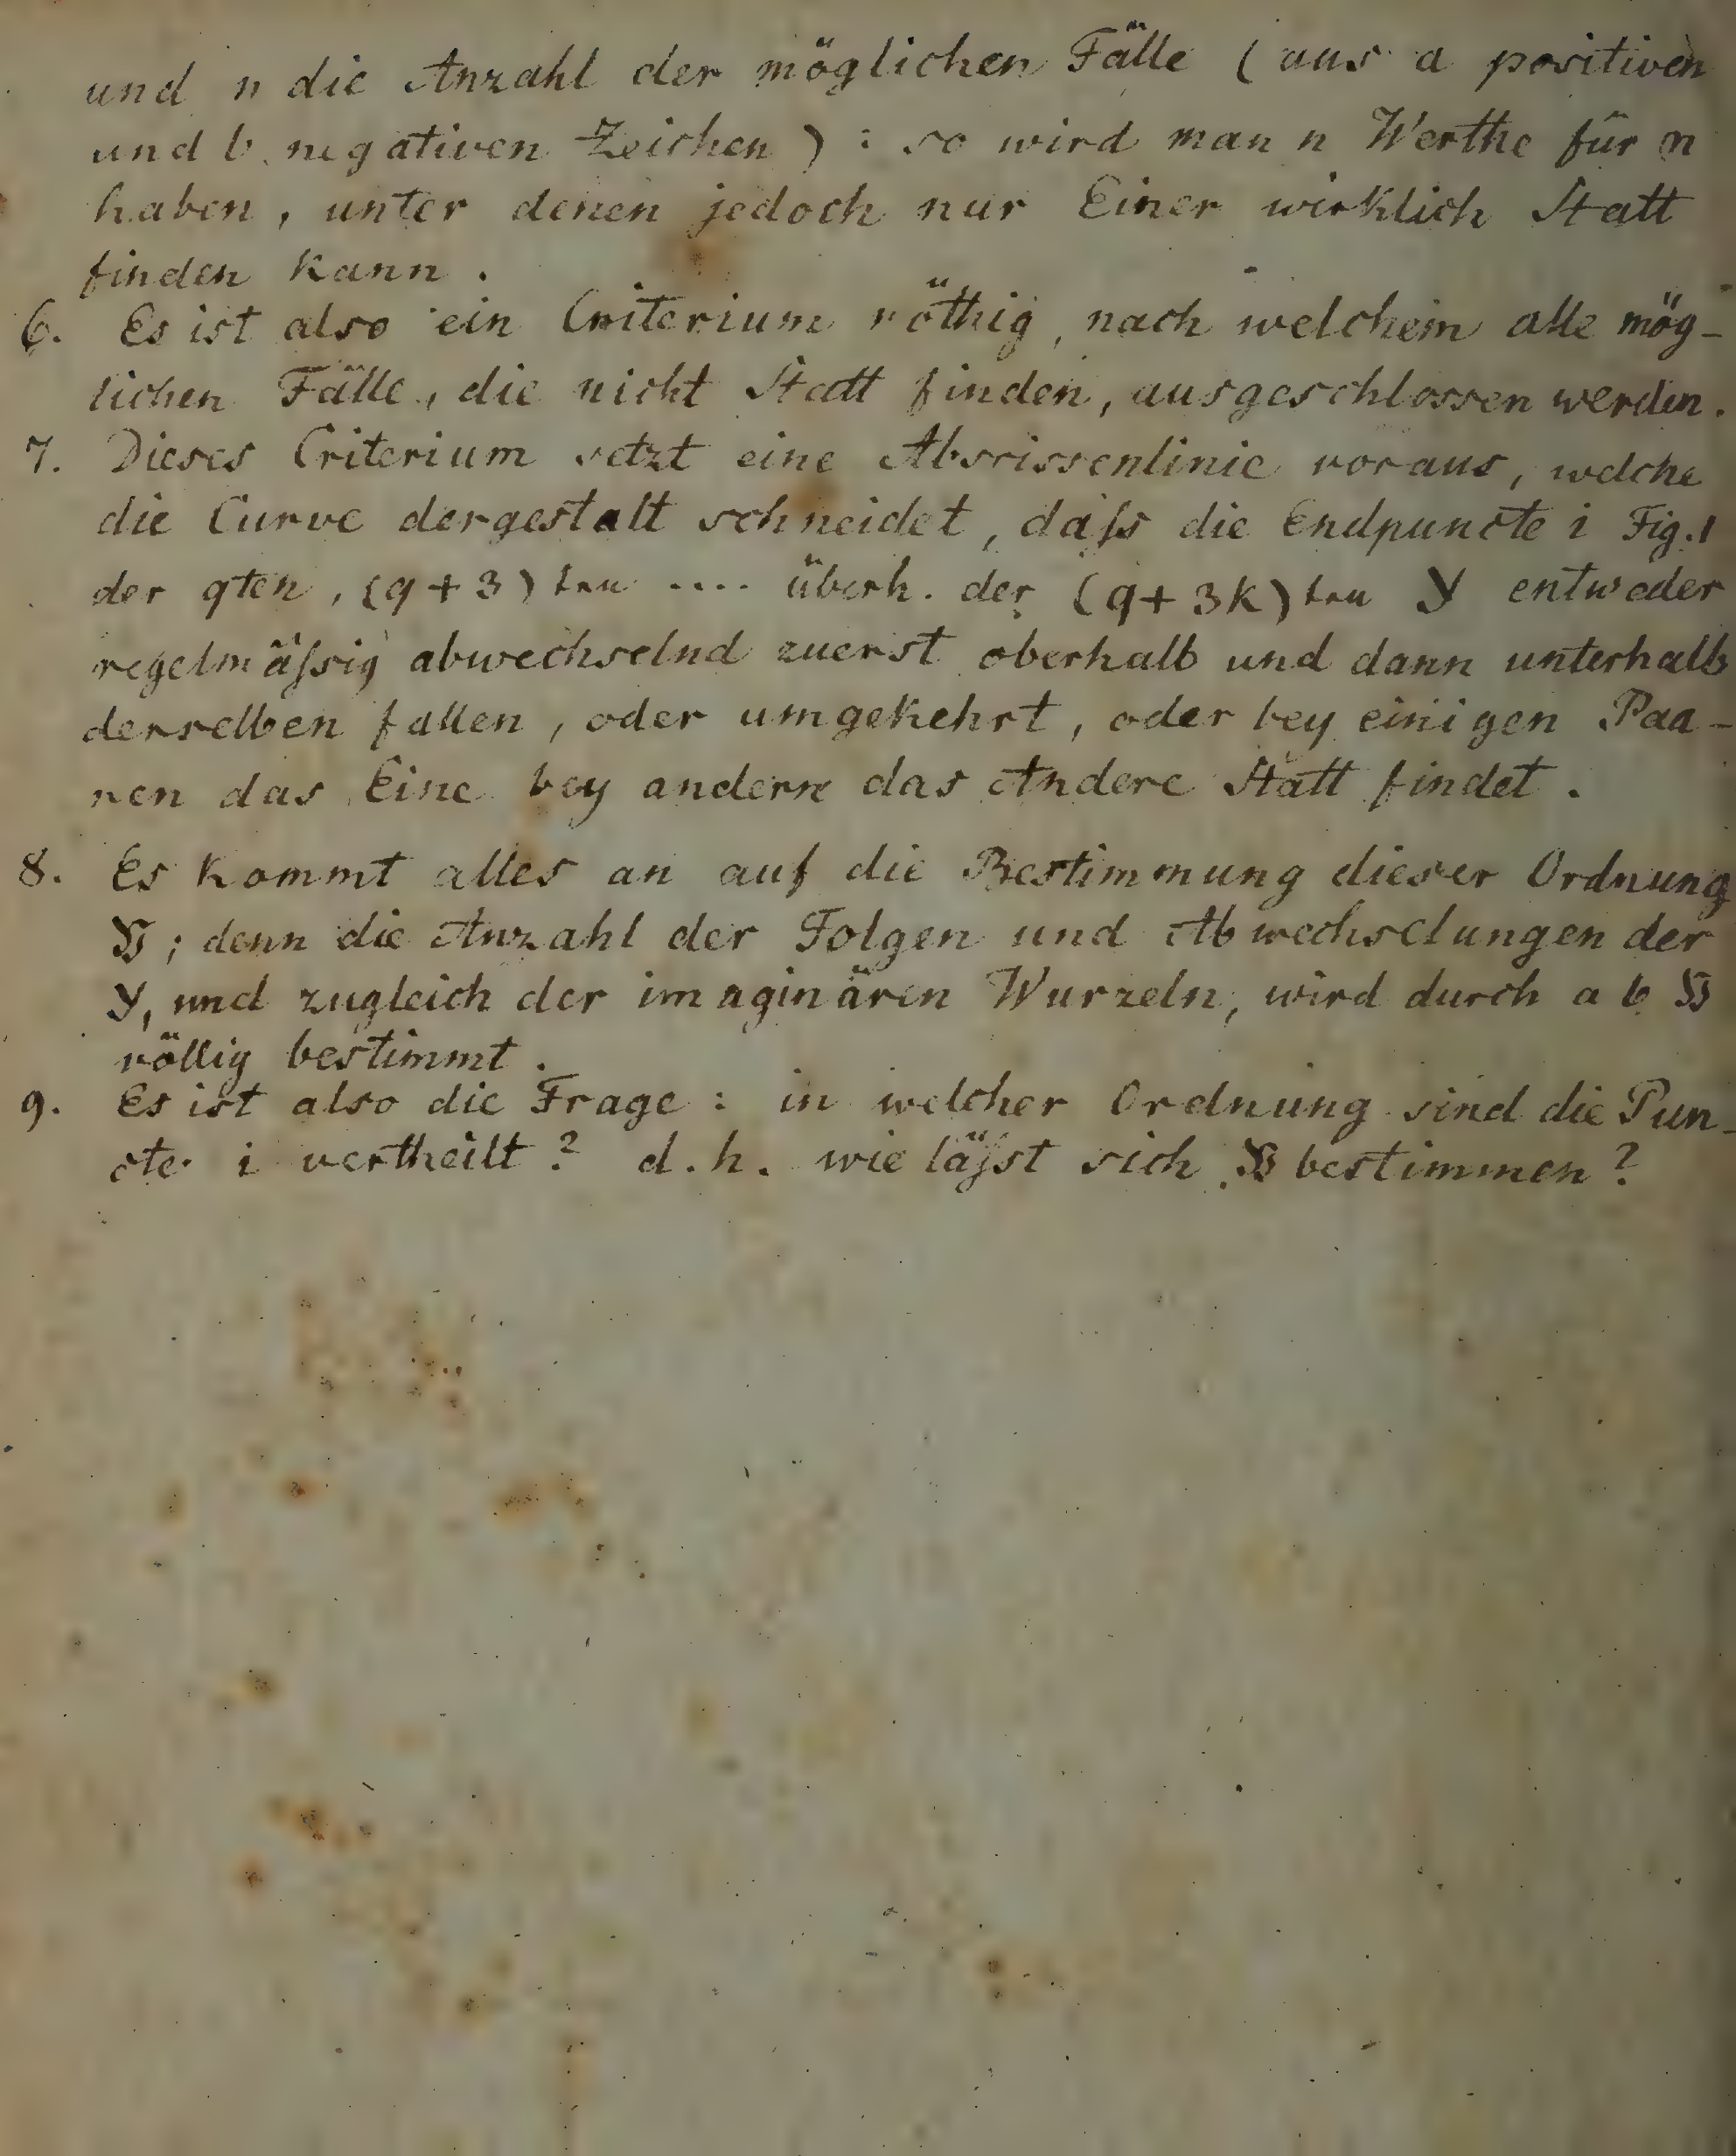 und n die Anzahl der möglichen Fälle (aus a positiven
und b negativen Zeichen) : so wird man n Werthe für m
haben, unter denen jedoch nur Einer wirklich Statt
finden kann.
6. Es ist also ein Criterium nöthig, nach welchem alle mög-
lichen Fälle, die nicht Statt finden, ausgeschlossen werden.
7. Dieses Criterium setzt eine Abscissenlinie voraus, welche
die Curve dergestalt schneidet, daſs die Endpuncte i Fig. 1
der qten, (q+3)ten .... überh. der (q+3k)ten y entweder
regelmäſsig abwechselnd zuerst oberhalb und dann unterhalb
derselben fallen, oder umgekehrt, oder bey einigen Paa-
ren das Eine bey andern das Andere Statt findet.
8. Es kommt alles an auf die Bestimmung dieser Ordnung
; denn die Anzahl der Folgen und Abwechselungen der
y, und zugleich der imaginären Wurzeln, wird durch a b
völlig bestimmt.
9. Es ist also die Frage : in welcher Ordnung sind die Pun-
cte i vertheilt? d.h. wie läſst sich bestimmen?